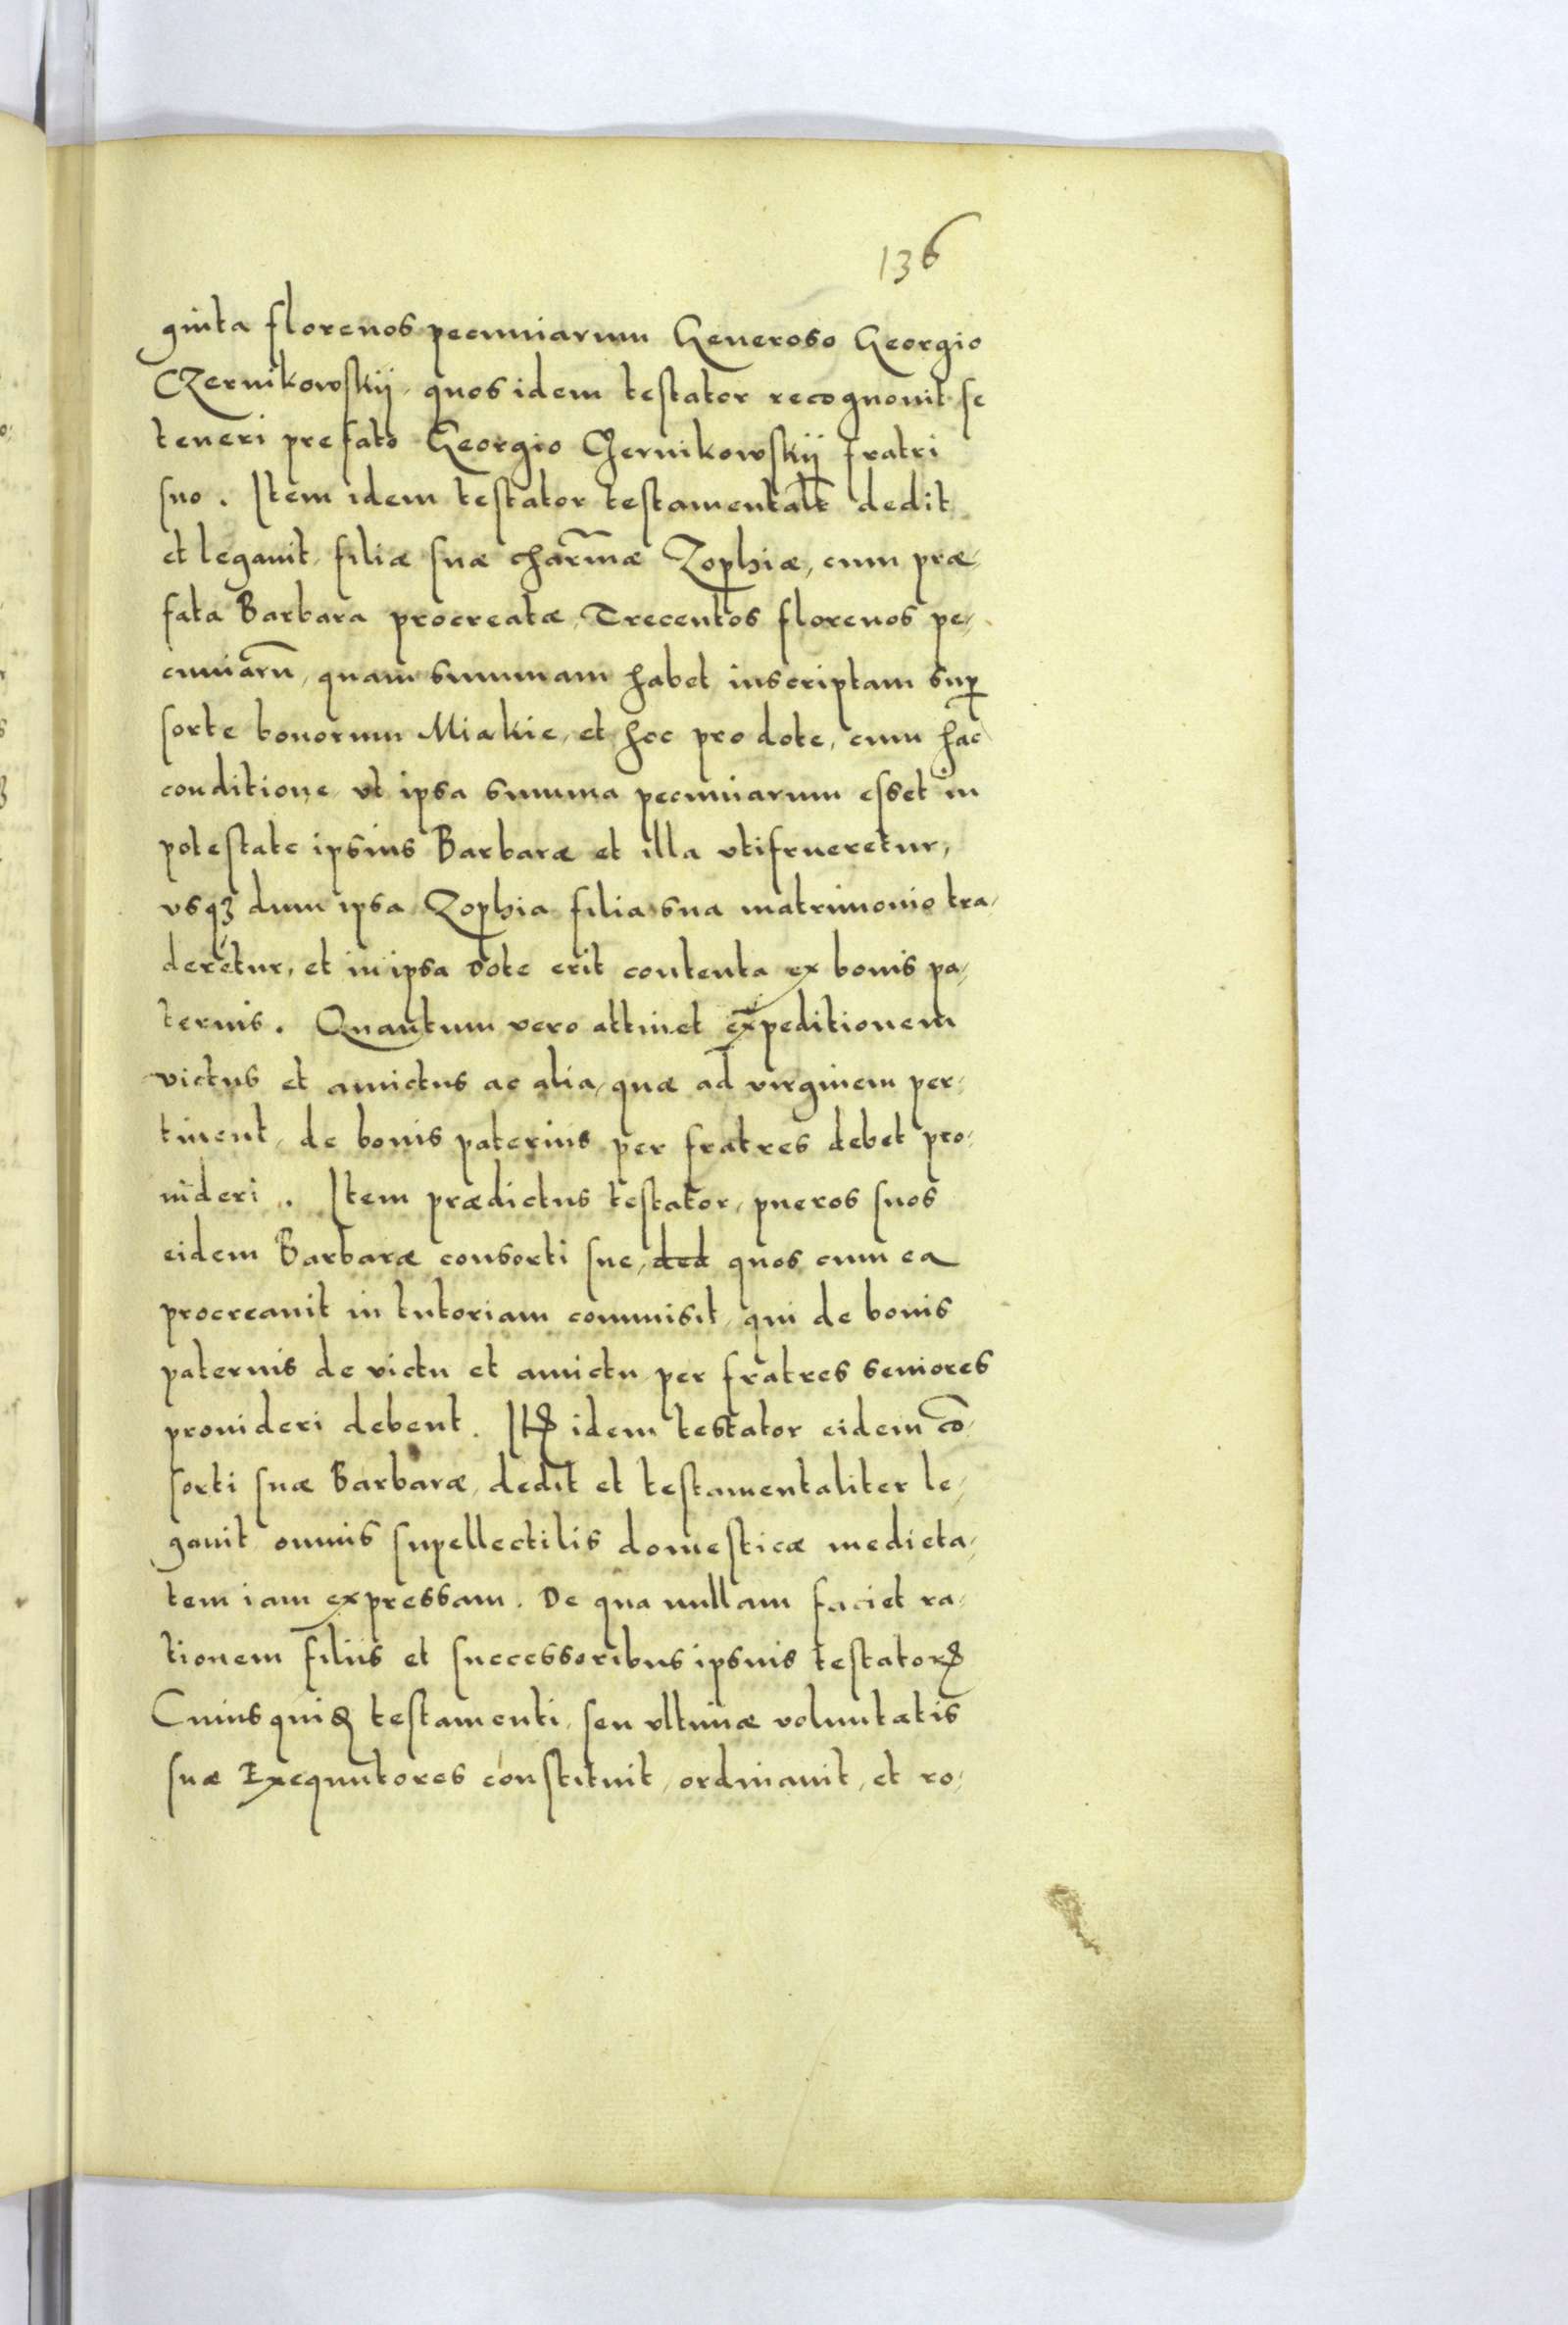 136
ginta florenos pecuniarum Generoso Georgio
CZernikowskij, quos idem testator recognouit se
teneri prefato Georgio CZernikowskij fratri
suo. Item idem testator testamentalr̄ dedit
et legauit, filiæ suæ char̄mæ Zophiæ, cum præ,
fata Barbara procreatæ, Trecentos florenos pe,
cuniarū, quam summam habet inscriptam suꝑ
sorte bonorum Miakie, et hoc pro dote, cum hac
conditione vt ipsa summa pecuniarum esset in
potestate ipsius Barbaræ et illa vtifrueretur,
vsqꝫ dum ipsa Zophia filia sua matrimonio tra,
deretur, et in ipsa dote erit contenta ex bonis pa,
ternis. Quantum vero attinet expeditionem
victus et amictus ac alia, quæ ad virginem per,
tinent, de bonis paternis per fratres debet pro,
uideri. Item prædictus testator, pueros suos
eidem Barbaræ consorti sue, ded quos cum ea
procreauit in tutoriam commisit, qui de bonis
paternis de victu et amictu per fratres seniores
prouideri debent. Itꝫ idem testator eidem cō,
sorti suæ Barbaræ, dedit et testamentaliter le,
gauit omnis supellectilis domesticæ medieta,
tem iam expressam. De qua nullam faciet ra,
tionem filiis et successoribus ipsius testatorꝭ
Cuiusquidꝫ testamenti, seu vltimæ voluntatis
suæ Exequutores constituit, ordinauit, et ro,